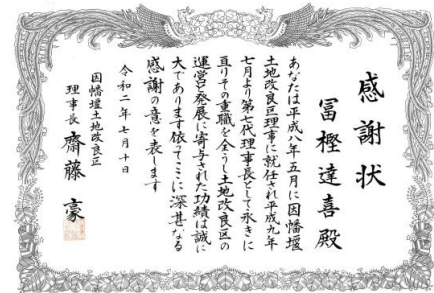 感謝状
冨樫達喜殿
あなたは平成八年五月に因幡堰
土地改良区理事に就任され平成九年
七月より第七代理事長として永きに
亘りその重職を全うし土地改良区の
運営発展に寄与された功績は誠に
大であります依ってここに深甚なる
感謝の意を表します
令和二年七月十日
因幡堰土地改良区
理事長 齋藤 豪